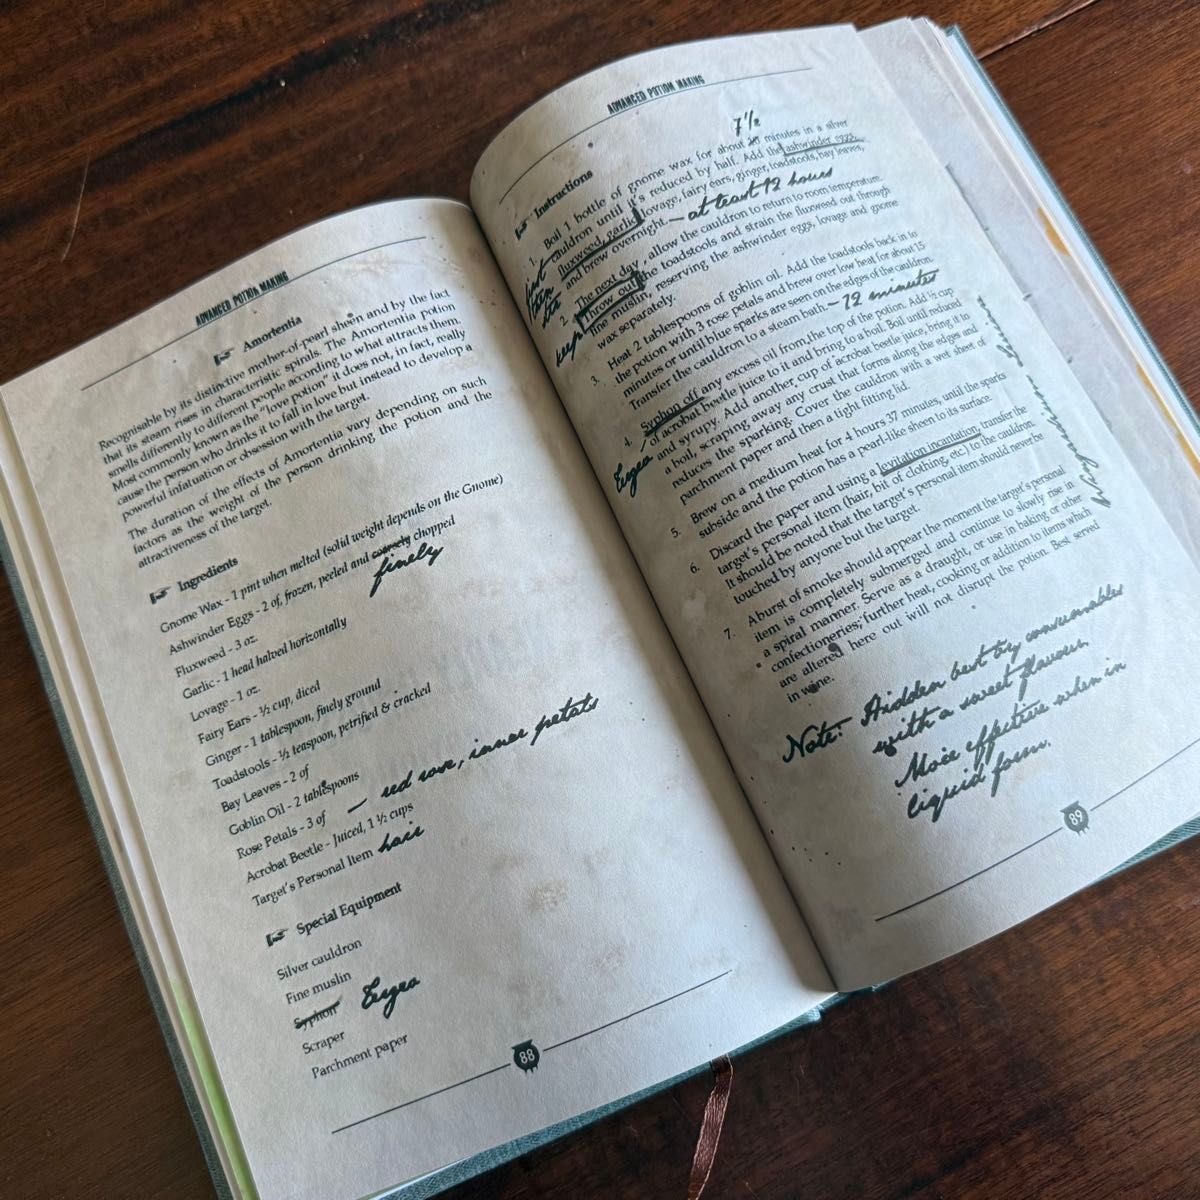 ADVANCED POTION MAKING
Amortentia
Recognisable by its distinctive mother-of-pearl sheen and by the fact
that its steam rises in characteristic spirals. The Amortentia potion
smells differently to different people according to what attracts them.
Most commonly known as the "love potion" it does not, in fact, really
cause the person who drinks it to fall in love but instead to develop a
powerful infatuation or obsession with the target.
The duration of the effects of Amortentia vary depending on such
factors as the weight of the person drinking the potion and the
attractiveness of the target.
Ingredients
Gnome Wax - 1 pint when melted (solid weight depends on the Gnome)
Ashwinder Eggs - 2 of, frozen, peeled and coarsely chopped
finely
Fluxweed - 3 oz.
Garlic - 1 head halved horizontally
Lovage - 1 oz.
Fairy Ears - ½ cup, diced
Ginger - 1 tablespoon, finely ground
Toadstools - ½ teaspoon, petrified & cracked
Bay Leaves - 2 of
Goblin Oil - 2 tablespoons
Rose Petals - 3 of – red rose, inner petals
Acrobat Beetle - Juiced, 1 ½ cups
Target's Personal Item hair
Special Equipment
Silver cauldron
Fine muslin
Syphon Evgeo
Scraper
Parchment paper
88
ADVANCED POTION MAKING
Instructions
7½
1. Boil 1 bottle of gnome wax for about minutes in a silver
cauldron until it's reduced by half. Add the ashwinder eggs,
fluxweed, garlic, lovage, fairy ears, ginger, toadstools, bay leaves,
and brew overnight. – at least 12 hours
2. The next day, allow the cauldron to return to room temperature.
Throw out the toadstools and strain the fluxweed out through
keep
fine muslin, reserving the ashwinder eggs, lovage and gnome
wax separately.
3. Heat 2 tablespoons of goblin oil. Add the toadstools back in to
the potion with 3 rose petals and brew over low heat for about 15
minutes or until blue sparks are seen on the edges of the cauldron.
Transfer the cauldron to a steam bath. – 12 minutes
4. Syphon off any excess oil from the top of the potion. Add ½ cup
Evgeo
of acrobat beetle juice to it and bring to a boil. Boil until reduced
and syrupy. Add another cup of acrobat beetle juice, bring it to
a boil, scraping away any crust that forms along the edges and
reduces the sparking. Cover the cauldron with a wet sheet of
parchment paper and then a tight fitting lid.
5. Brew on a medium heat for 4 hours 37 minutes, until the sparks
subside and the potion has a pearl-like sheen to its surface.
6. Discard the paper and using a levitation incantation, transfer the
target's personal item (hair, bit of clothing, etc) to the cauldron.
It should be noted that the target's personal item should never be
touched by anyone but the target.
7. A burst of smoke should appear the moment the target's personal
item is completely submerged and continue to slowly rise in
a spiral manner. Serve as a draught, or use in baking or other
confectioneries; further heat, cooking or addition to items which
are altered here out will not disrupt the potion. Best served
in wine.
Note: Hidden best by consumables
with a sweet flavour.
More effective when in
liquid form.
89